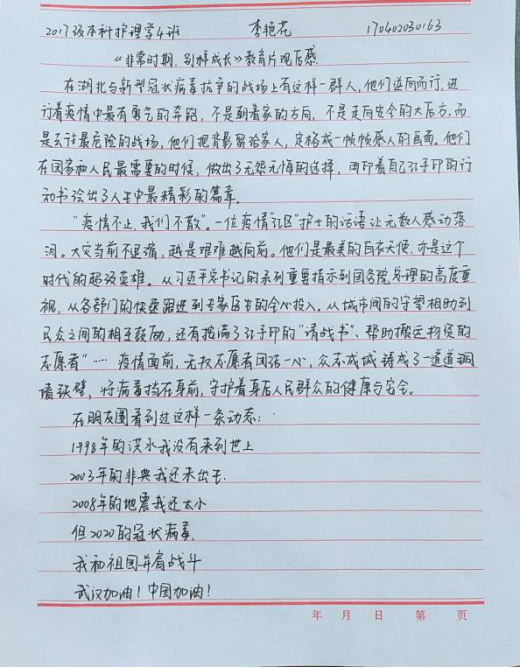 2017级本科护理学4班 李艳花 170402030163
《非常时期，别样成长》教育片观后感
在湖北与新型冠状病毒抗争的战场上有这样一群人，他们逆向而行，进
行着疫情中最有勇气的奔跑，不是朝着家的方向，不是走向安全的大后方，而
是去往最危险的战场，他们把背影留给家人，定格成一帧帧感人的画面。他们
在国家和人民最需要的时候，做出了无怨无悔的选择，用印着自己红手印的行
动书绘出了人生中最精彩的篇章。
“疫情不止，我们不散”。一位疫情“红区”护士的话语让无数人感动落
泪。大灾当前不退缩，越是艰难越向前。他们是最美的白衣天使，亦是这个
时代的超级英雄。从习近平总书记的系列重要指示到国务院总理的高度重
视，从各部门的快速跟进到专家医生的全心投入，从城市间的守望相助到
民众之间的相互鼓励，还有按满了红手印的“请战书”、帮助搬运物资的
志愿者”……疫情面前，无数志愿者团结一心，众志成城铸成了一道道铜
墙铁壁，将病毒挡在身前，守护着身后人民群众的健康与安全。
在朋友圈看到过这样一条动态：
1998年的洪水我没有来到世上
2003年的非典我还未出生.
2008年的地震我还太小
但2020的冠状病毒.
我和祖国并肩战斗
武汉加油！中国加油！
年 月 日 第 页